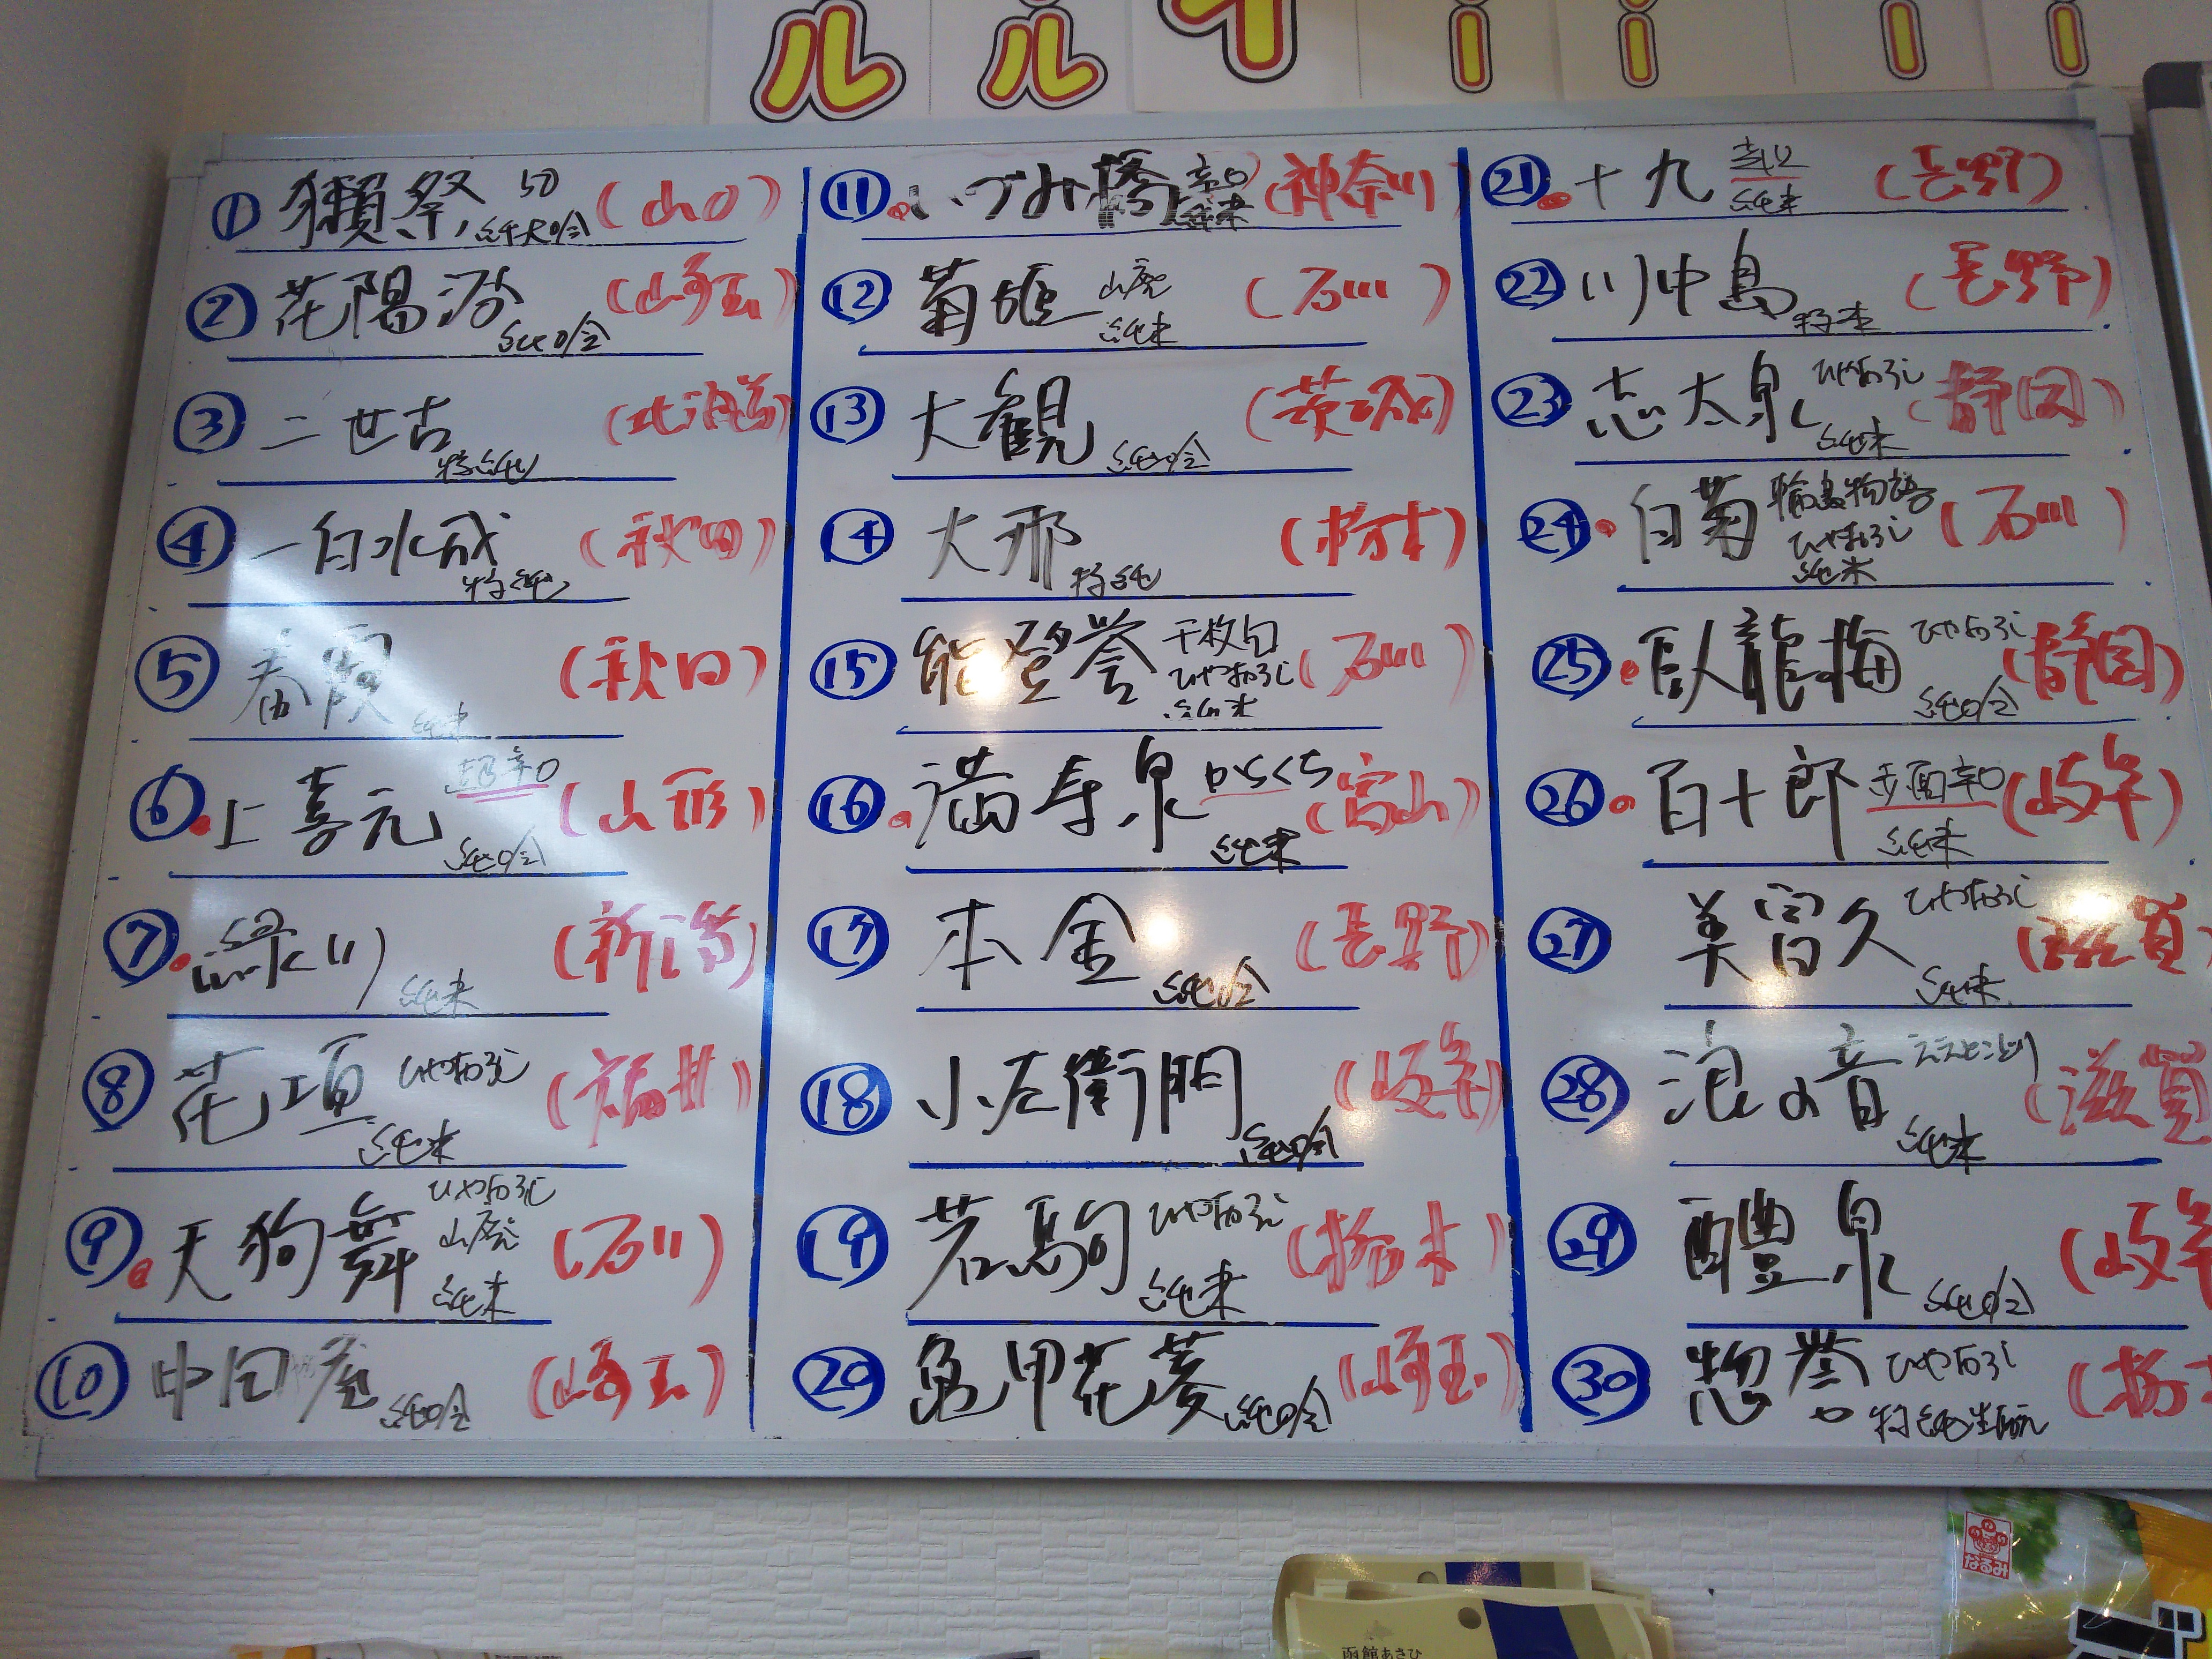 ルルイーーーー
① 獺祭 50 純大吟 (山口)
② 花陽浴 純吟 (埼玉)
③ 二世古 特純 (北海道)
④ 一白水成 特純 (秋田)
⑤ 春霞 純米 (秋田)
⑥ 上喜元 超辛口 純吟 (山形)
⑦ 緑川 純米 (新潟)
⑧ 花垣 ひやおろし 純米 (福井)
⑨ 天狗舞 ひやおろし 山廃 純米 (石川)
⑩ 中田屋 純吟 (埼玉)
⑪ いづみ橋 辛口 純米 (神奈川)
⑫ 菊姫 山廃 純米 (石川)
⑬ 大観 純吟 (茨城)
⑭ 大那 特純 (栃木)
⑮ 能登誉 千枚田 ひやおろし 純米 (石川)
⑯ 満寿泉 からくち 純米 (富山)
⑰ 本金 純吟 (長野)
⑱ 小左衛門 純吟 (岐阜)
⑲ 若駒 ひやおろし 純米 (栃木)
⑳ 亀甲花菱 純吟 (埼玉)
㉑ 十九 純米 (長野)
㉒ 川中島 特本 (長野)
㉓ 志太泉 ひやおろし 純米 (静岡)
㉔ 白菊 輪島物語 ひやおろし 純米 (石川)
㉕ 臥龍梅 ひやおろし 純吟 (静岡)
㉖ 百十郎 赤面辛口 純米 (岐阜)
㉗ 美冨久 ひやおろし 純米 (滋賀)
㉘ 浪の音 ええとこどり 純米 (滋賀)
㉙ 醴泉 純吟 (岐阜
㉚ 惣誉 ひやおろし 特純生酛 (栃木
なるみ
函館あさひ